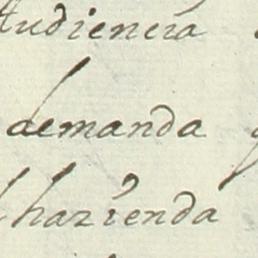 Audiencia
demanda
hazienda